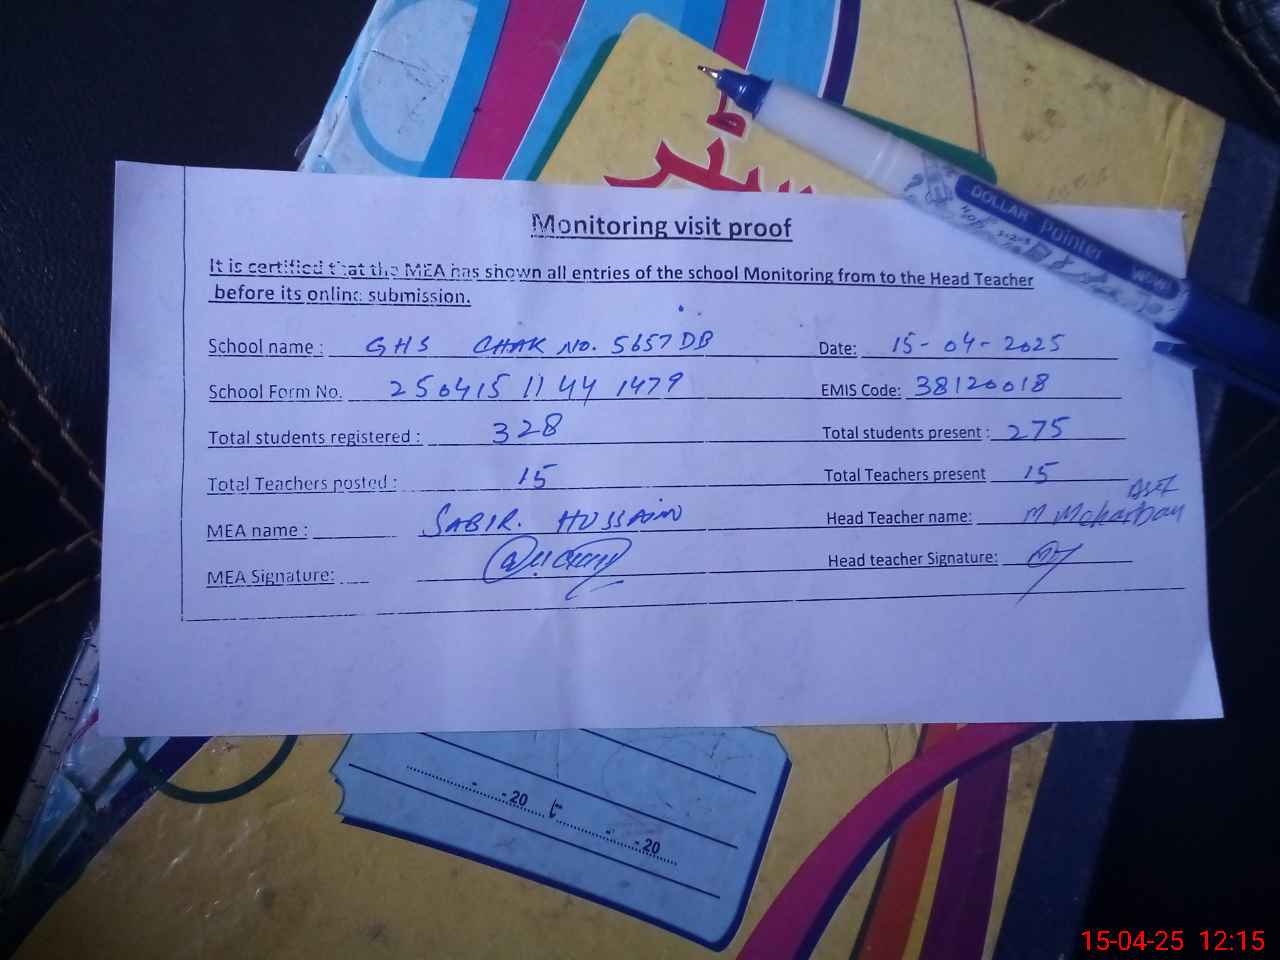 Monitoring visit proof
It is certified that the MEA has shown all entries of the school Monitoring from to the Head Teacher
before its online submission.
School name : GHS CHAK NO. 5657 DB Date: 15-04-2025
School Form No. 250415 1144 1479 EMIS Code: 38120018
Total students registered : 328 Total students present : 275
Total Teachers posted : 15 Total Teachers present 15
MEA name : SABIR. HUSSAIN Head Teacher name: M
MEA Signature: Head teacher Signature:
DOLLAR Pointer
-20
-20
15-04-25 12:15